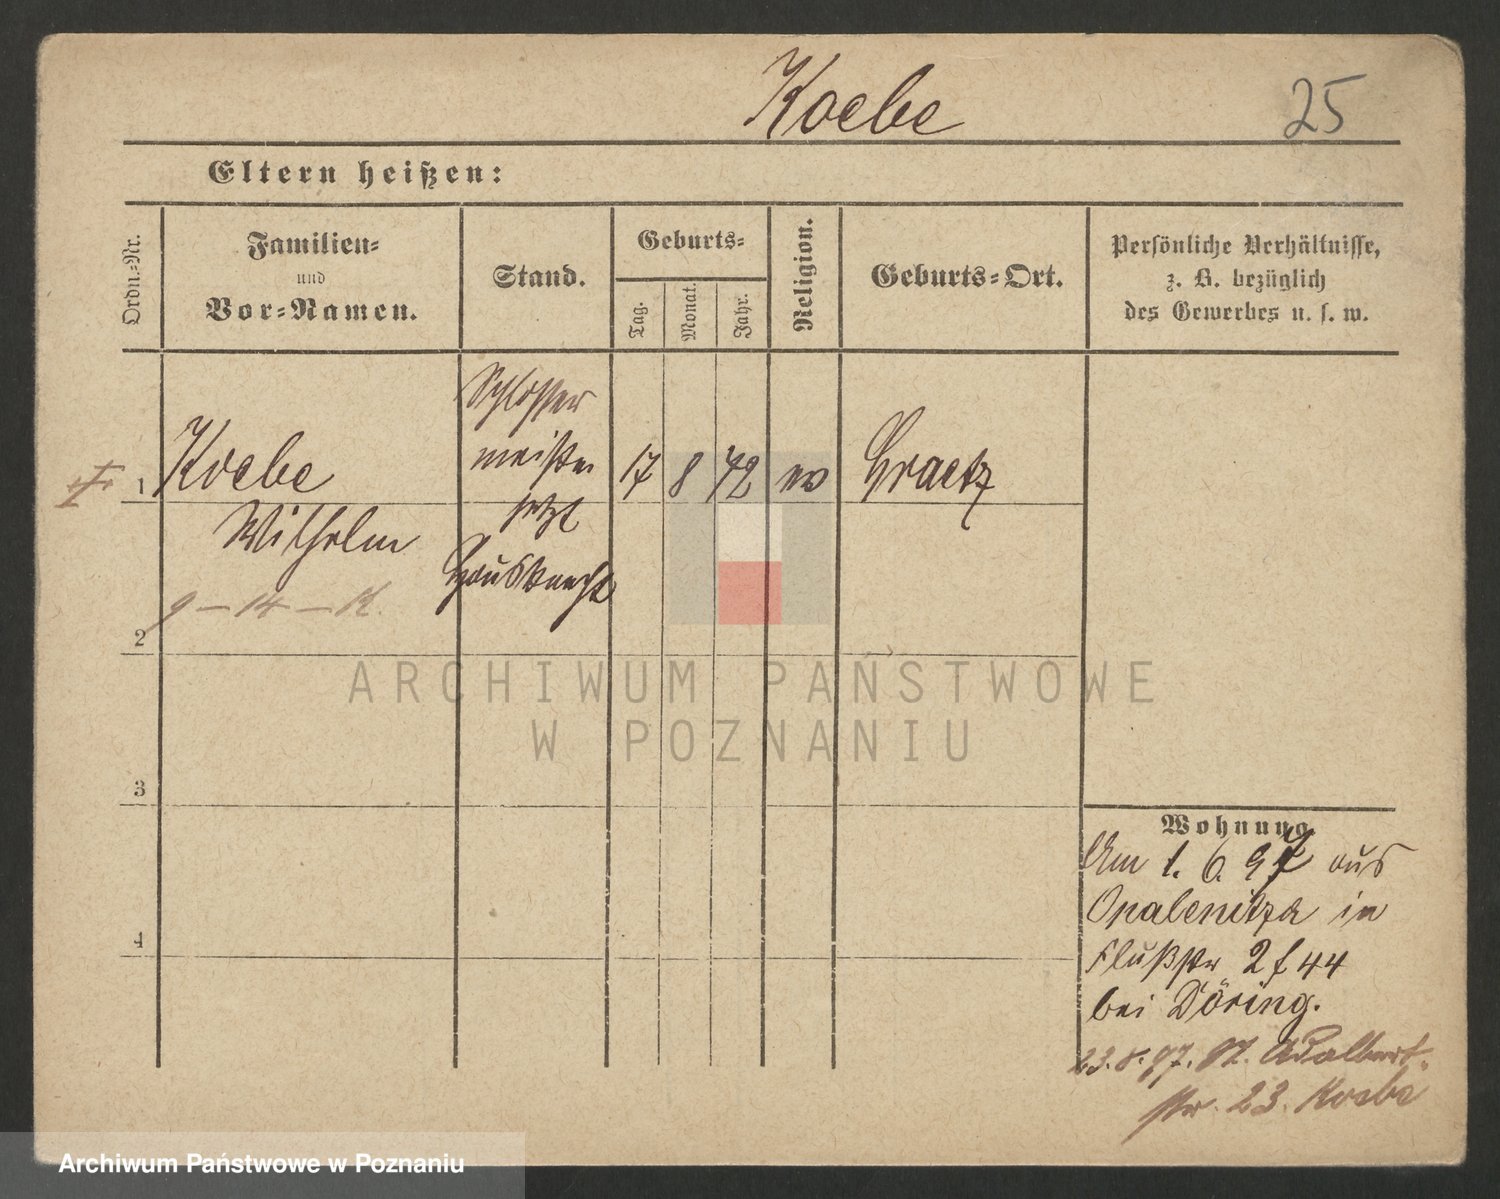 Koebe
25
Eltern heißen:
Ordn.-Nr.
Familien-
und
Vor-Namen.
Stand.
Geburts-
Tag.
Monat.
Jahr.
Religion.
Geburts-Ort.
Persönliche Verhältnisse,
z. B. bezüglich
des Gewerbes u. s. w.
1
Koebe
Wilhelm
Schlosser
meister
jetzt
Hausknecht
17 8 72 ev Graetz
9 - 14 - K.
2
3
4
Wohnung.
Am 1. 6. 97 aus
Opalenitza in
Flußstr 2 f 44
bei Döring.
23. 8. 97. Adalbert-
str. 23. Koebe
ARCHIWUM PAŃSTWOWE
W POZNANIU
Archiwum Państwowe w Poznaniu